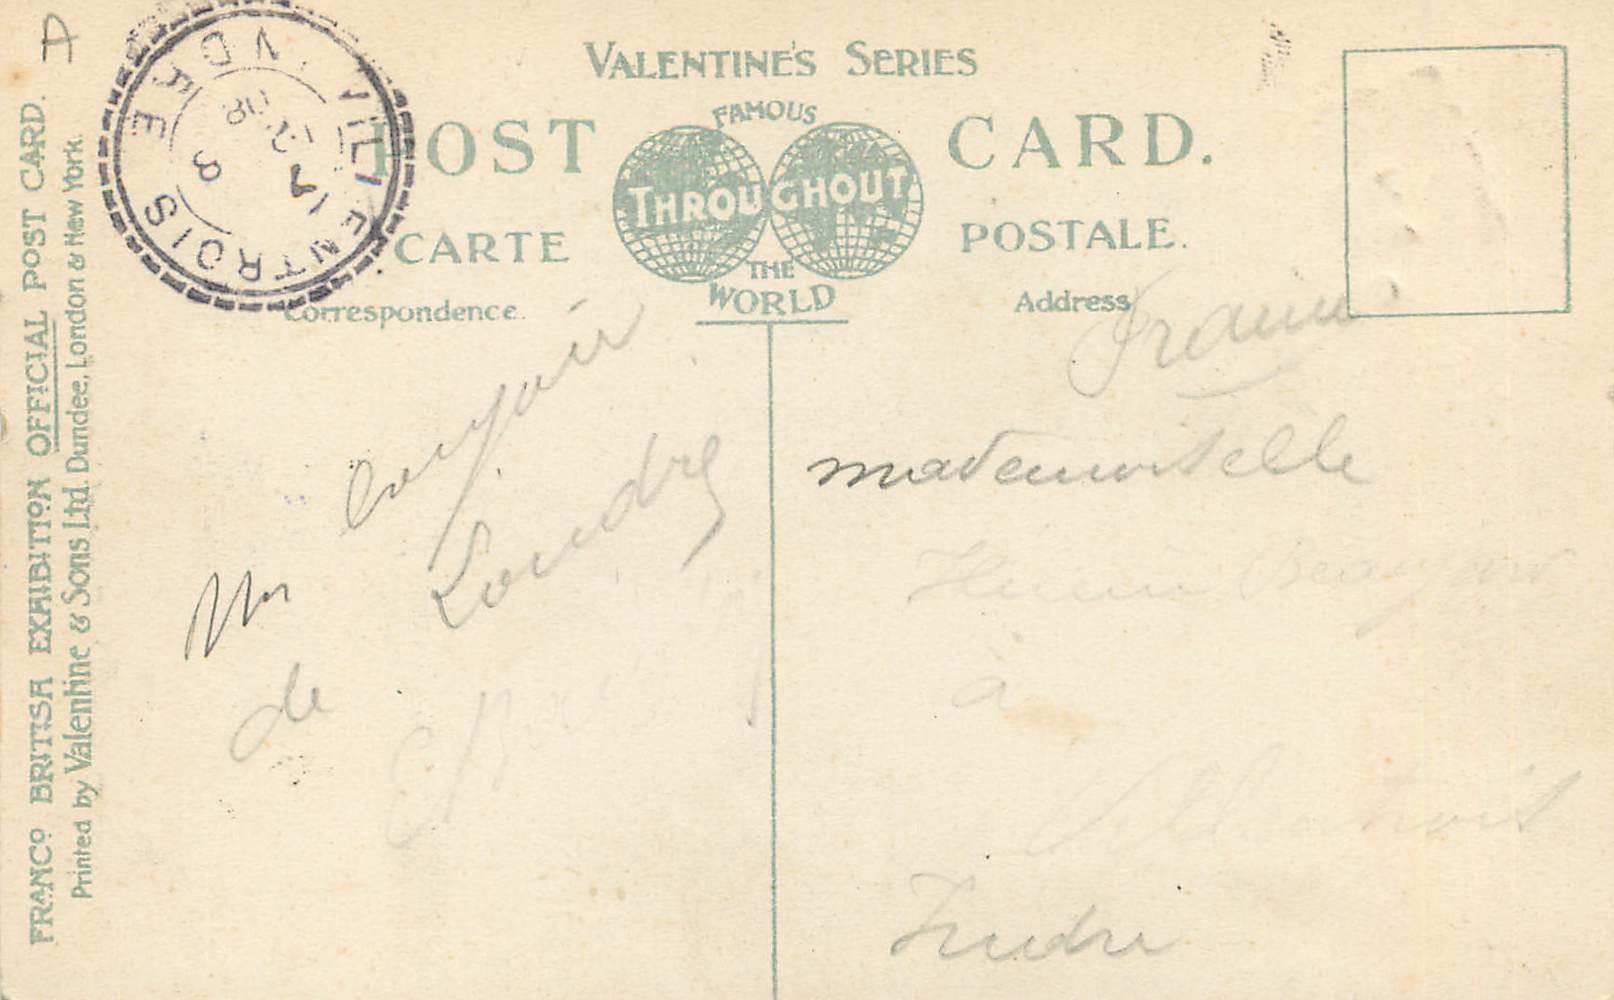 A
VALENTINE'S SERIES
POST CARD.
FAMOUS
THROUGHOUT
THE
WORLD
CARTE POSTALE.
Correspondence.
Address
FRANCO BRITISH EXHIBITION OFFICIAL POST CARD.
Printed by Valentine & Sons Ltd. Dundee, London & New York.
VILLENTROIS
INDRE
8
12
08
Un bonjour
de Londres
mademoiselle
à
Villentrois
Indre